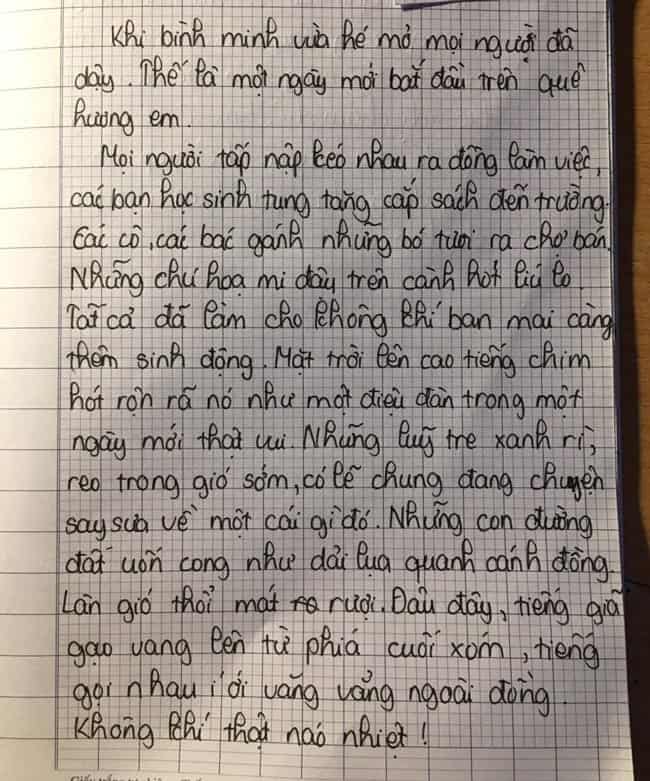 Khi bình minh vừa hé mở mọi người đã
dậy. Thế là một ngày mới bắt đầu trên quê
hương em.
Mọi người tấp nập kéo nhau ra đồng làm việc,
các bạn học sinh tung tăng cắp sách đến trường.
Các cô, các bác gánh những bó tươi ra chợ bán.
Những chú hoạ mi đậu trên cành hót líu lo.
Tất cả đã làm cho không khí ban mai càng
thêm sinh động. Mặt trời lên cao tiếng chim
hót rộn rã nó như một điệu đàn trong một
ngày mới thật vui. Những luỹ tre xanh rì,
reo trong gió sớm, có lẽ chung đang chuyện
say sưa về một cái gì đó. Những con đường
đất uốn cong như dải lụa quanh cánh đồng.
Làn gió thổi mát rượi. Đâu đây, tiếng giã
gạo vang lên từ phía cuối xóm, tiếng
gọi nhau í ới văng vẳng ngoài đồng.
Không khí thật náo nhiệt!